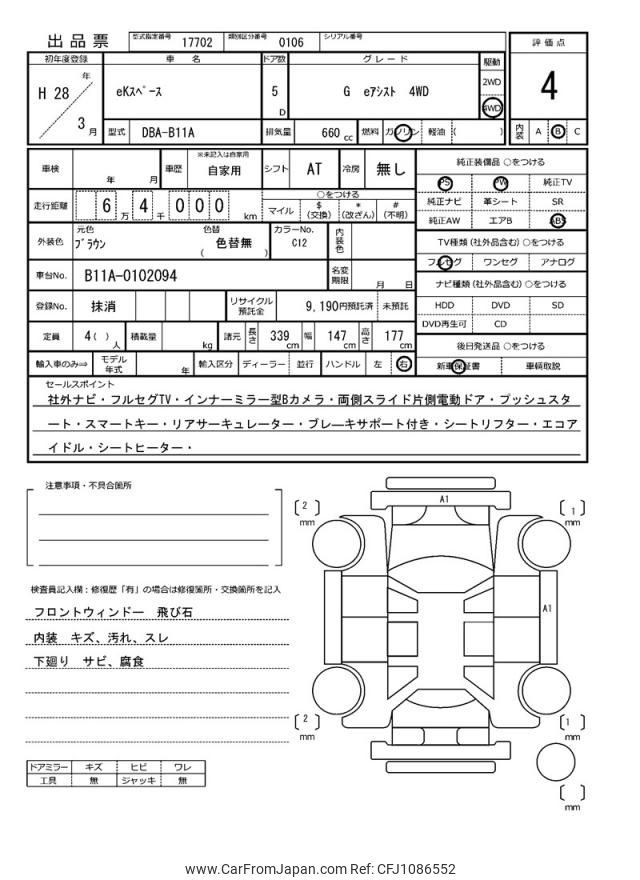 出品票 型式指定番号 17702 類別区分番号 0106 シリアル番号
評価点
4
初年度登録 車名 ドア数 グレード 駆動
H 28 年 3 月
eKｽﾍﾟｰｽ 5 D G eｱｼｽﾄ 4WD
2WD
4WD
型式 DBA-B11A 排気量 660 cc 燃料 ガソリン 軽油 ( )
内装 A B C
車検 年 月 車歴 ※未記入は自家用 自家用 シフト AT 冷房 無し
走行距離 6 万 4 千 0 0 0 km
○をつける
マイル $ (交換) * (改ざん) # (不明)
外装色 元色 ﾌﾞﾗｳﾝ 色替 ( 色替無 ) カラーNo. C12 内装色
車台No. B11A-0102094 名変期限 月 日
登録No. 抹消 リサイクル預託金 9,190円預託済 未預託
定員 4( ) 人 積載量 kg 諸元 長さ 339 cm 幅 147 cm 高さ 177 cm
輸入車のみ⇒ モデル年式 年 輸入区分 ディーラー 並行 ハンドル 左 右
純正装備品 ○をつける
PS PW 純正TV
純正ナビ 革シート SR
純正AW エアB ABS
TV種類 (社外品含む) ○をつける
フルセグ ワンセグ アナログ
ナビ種類 (社外品含む) ○をつける
HDD DVD SD
DVD再生可 CD
後日発送品 ○をつける
新車保証書 車輌取説
セールスポイント
社外ナビ・フルセグTV・インナーミラー型Bカメラ・両側スライド片側電動ドア・プッシュスタ
ート・スマートキー・リアサーキュレーター・ブレーキサポート付き・シートリフター・エコア
イドル・シートヒーター・
注意事項・不具合箇所
検査員記入欄：修復歴「有」の場合は修復箇所・交換箇所を記入
フロントウィンドー 飛び石
内装 キズ、汚れ、スレ
下廻り サビ、腐食
ドアミラー キズ ヒビ ワレ
工具 無 ジャッキ 無
A1
〔 2 〕 mm
〔 1 〕 mm
A1
〔 2 〕 mm
〔 1 〕 mm
〔 〕 mm
www.CarFromJapan.com Ref: CFJ1086552